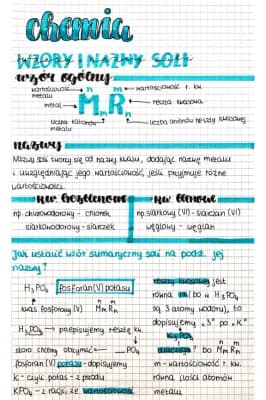 chemia
WZORY I NAZWY SOLI
wzór ogólny
wartościowość metalu
n m
wartościowość r. kw.
metal
MmRn
reszta kwasowa
liczba kationów metalu
liczba anionów reszty kwasowej
nazwy
Nazwy soli tworzy się od nazwy kwasu, dodając nazwę metalu
i uwzględniając jego wartościowość, jeśli przyjmuje różne
wartościowości.
kw. beztlenowe
kw. tlenowe
np. chlorowodorowy - chlorek
siarkowodorowy - siarczek
np. siarkowy (VI) - siarczan (VI)
węglowy - węglan
Jak ustalić wzór sumaryczny soli na podst. jej
nazwy?
H3PO4 fosforan(V) potasu
kwas fosforowy (V) MmRn
H3PO4 → przepisujemy resztę kw.
skoro chcemy otrzymać _PO4
fosforan (V) potasu - dopisujemy
K - czyli potas - z przodu
KPO4 - z racji, że wartościowość
reszty kwasowej jest
równa III (bo w H3PO4
są 3 atomy wodoru), to
dopisujemy „3" po „K"
K3PO4
dlaczego? bo MmRn
m - wartościowość r. kw.
równa ilości atomów
metalu